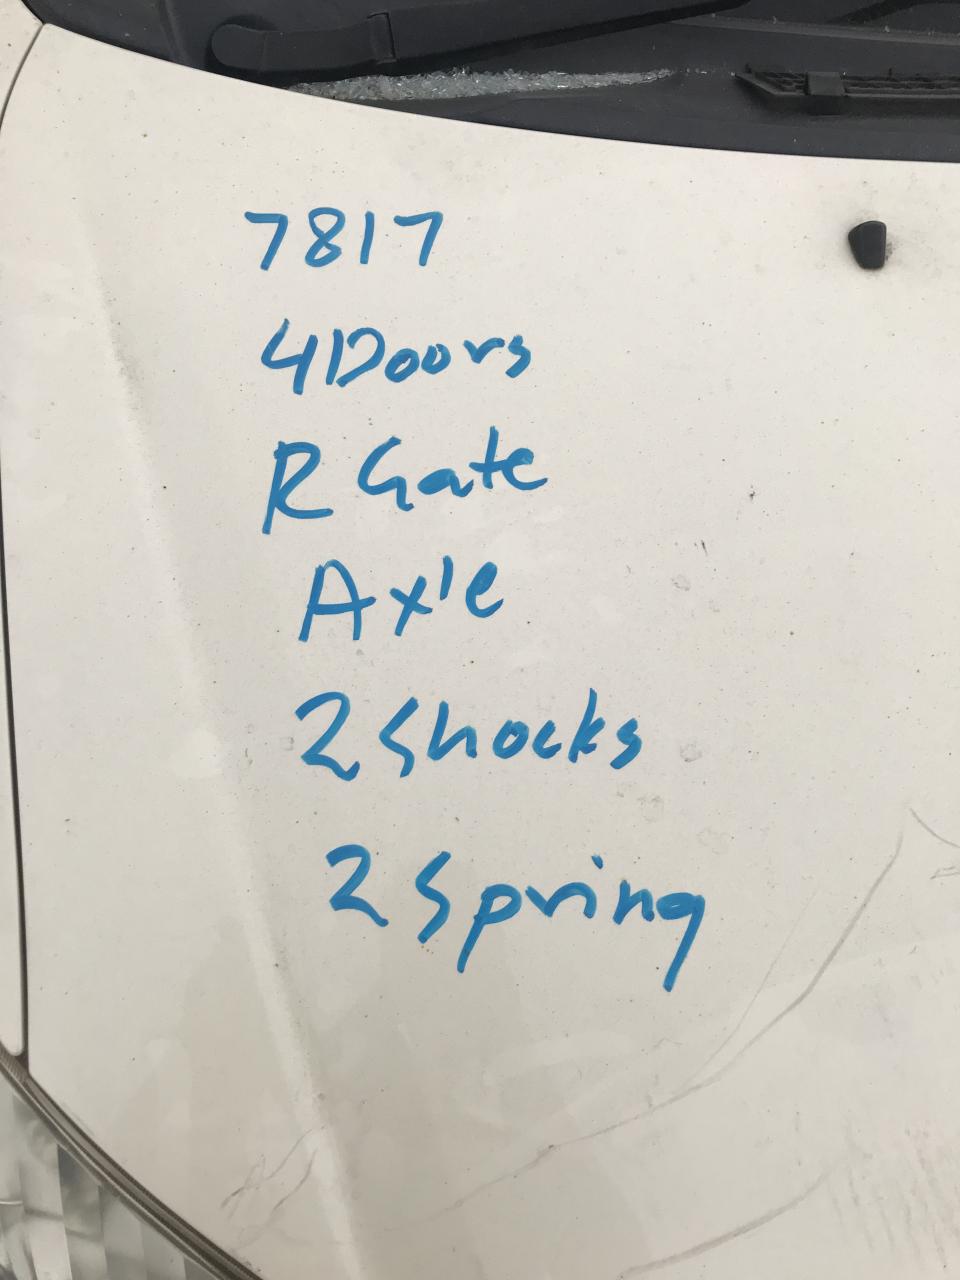 7817
4 Doors
R Gate
Axle
2 Shocks
2 Spring